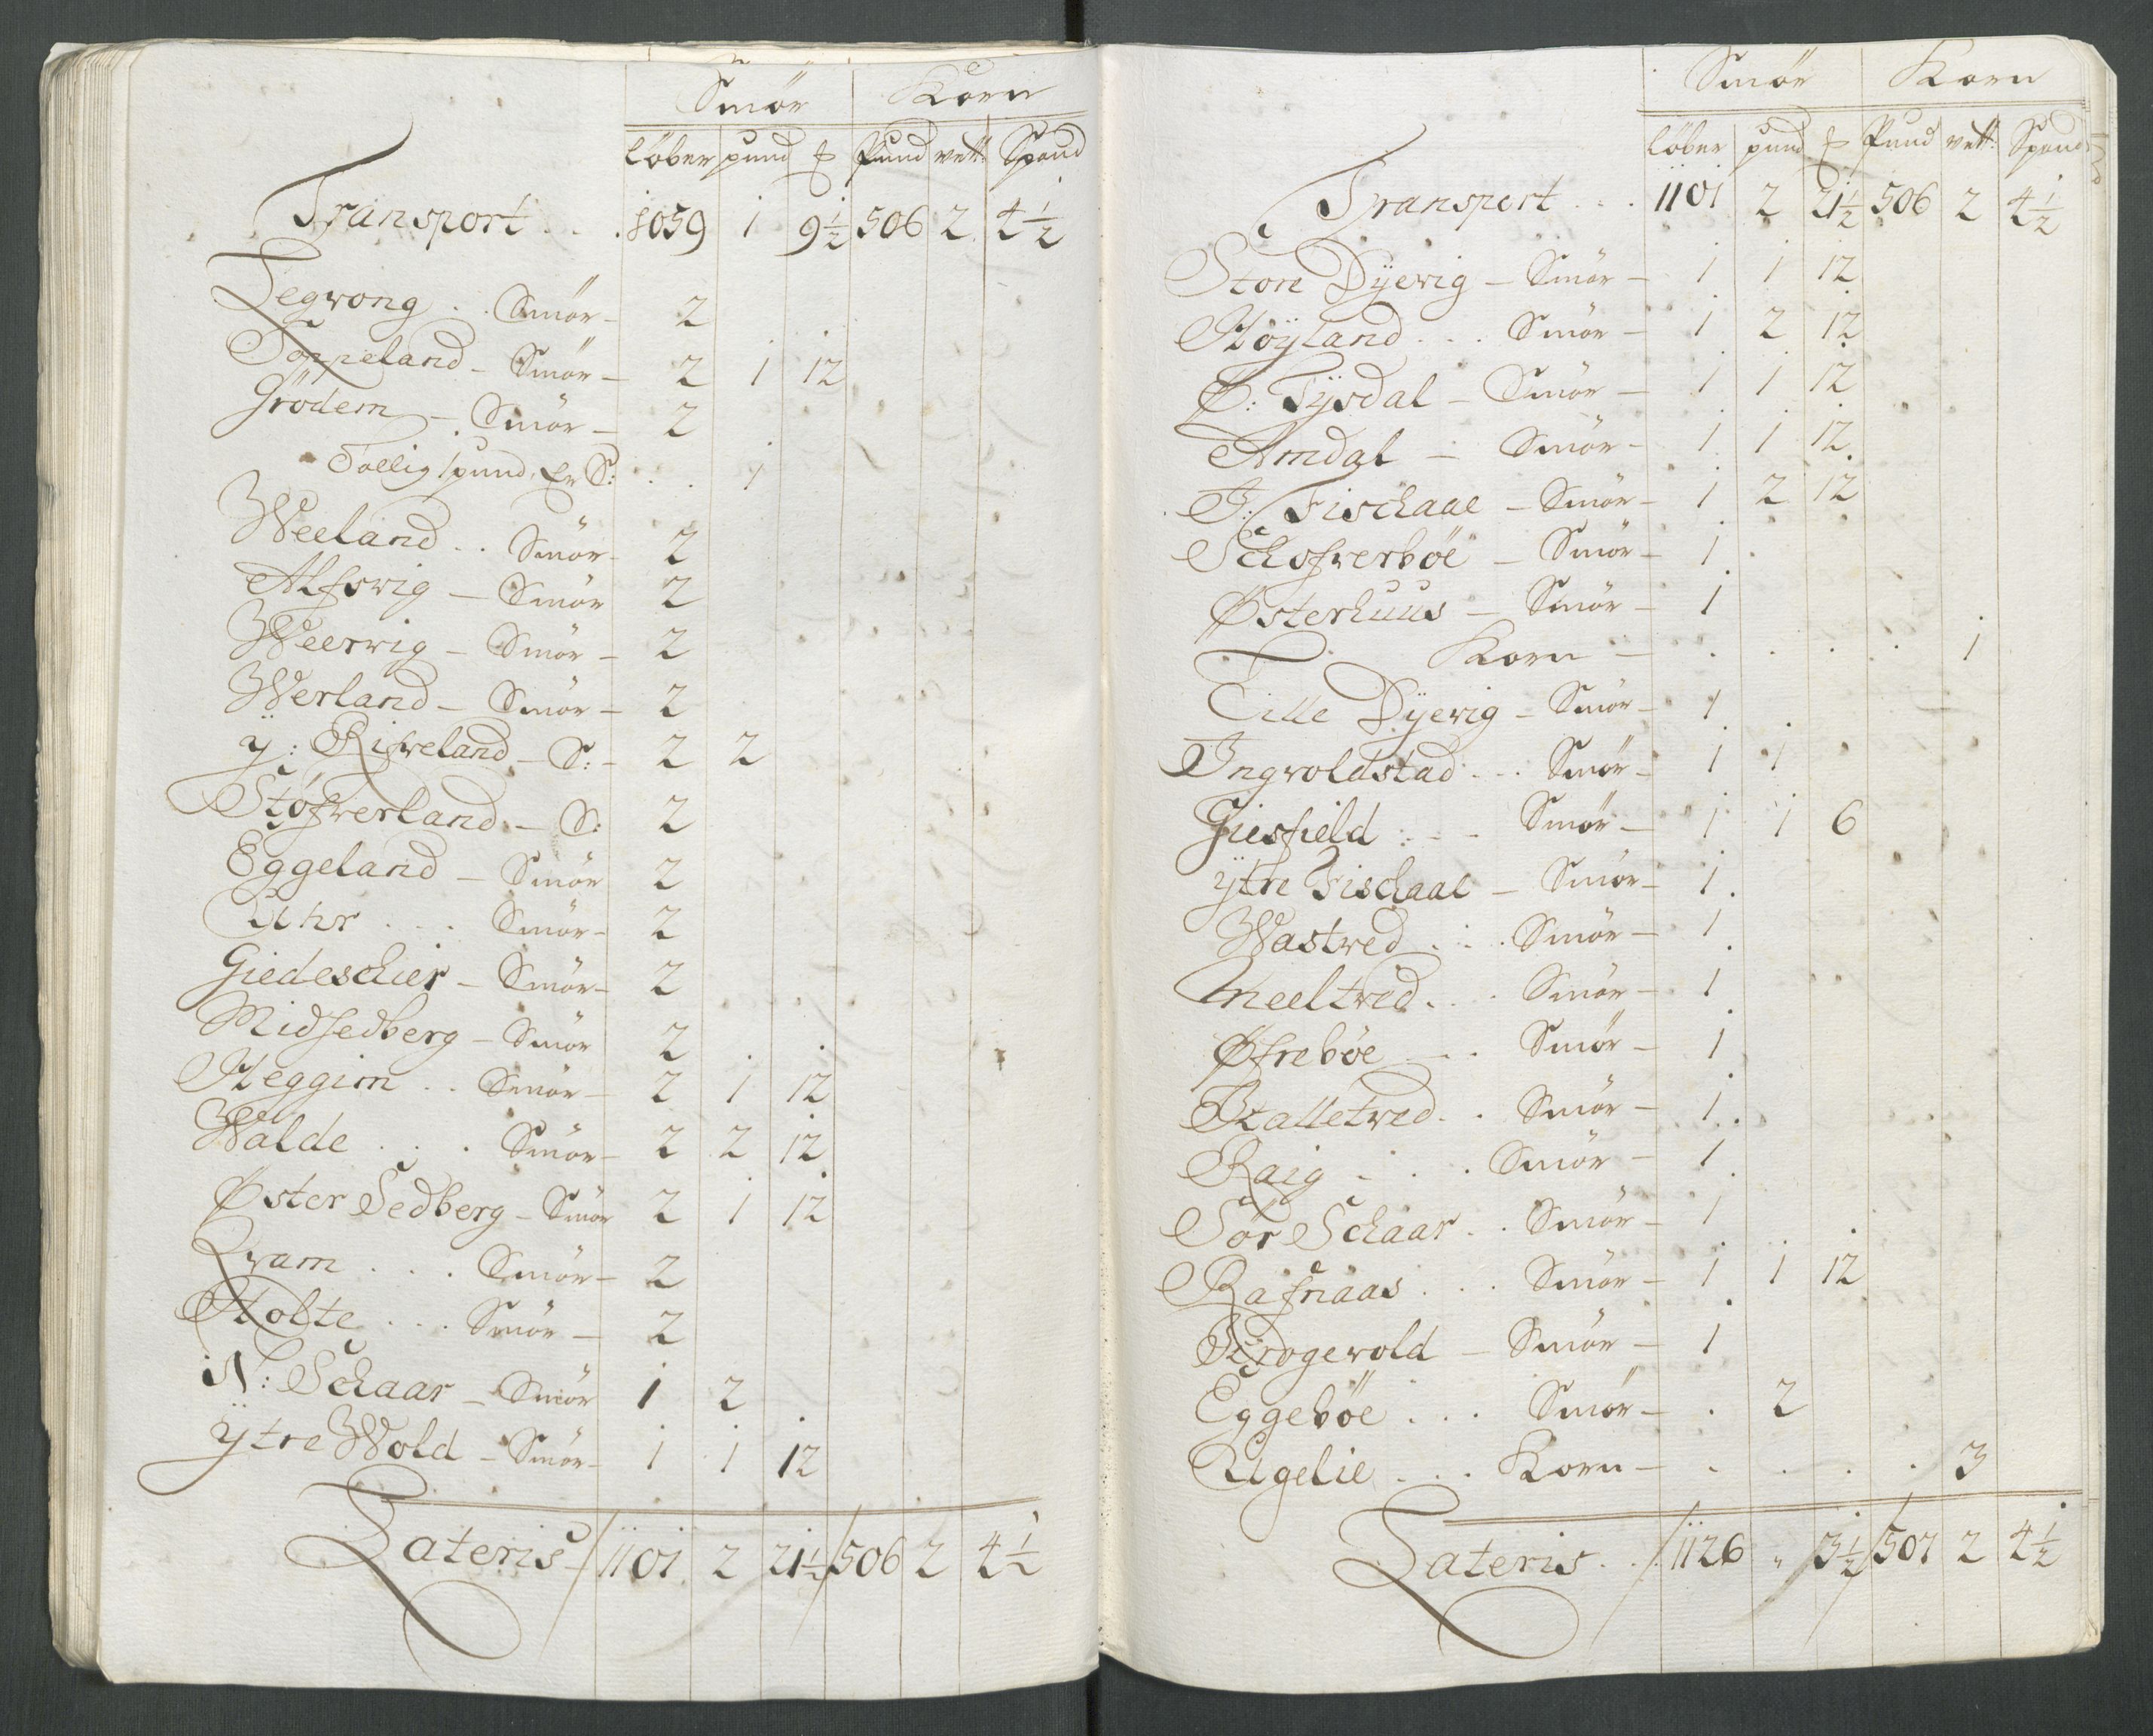 Smör Korn
löber pund ℔ Pund vett: Spand
Transport . . . 1059 1 9½ 506 2 4½
Tegvong . . Smör – 2
Toppeland – Smör – 2 1 12
Grödem – Smör – 2
Tollig 1 pund er S: . . 1
Weeland . . Smör – 2
Alfsvig – Smör 2
Weervig – Smör – 2
Werland – Smör – 2
ÿ: Rifveland – S: – 2 2
Støfverland – S: 2
Eggeland – Smör 2
Uhr . . . Smör – 2
Giedeschier – Smör – 2
Midsedberg – Smör 2
Heggim . . Smör – 2 1 12
Walde . . . Smör – 2 2 12
Øster Sedberg – Smör 2 1 12
Qvam . . . Smör – 2
Holte . . . Smör – 2
N: Schaar – Smör 1 2
ÿtre Wold – Smör – 1 1 12
Lateris – 1101 2 21½ 506 2 4½
Smör Korn
löber pund ℔ Pund vett: Spand
Transport . . . 1101 2 21½ 506 2 4½
Store Dÿevig – Smör – 1 1 12
Höÿland . . . Smör – 1 2 12
Ø: Tÿsdal – Smör – 1 1 12
Amdal – Smör – 1 1 12
I: Fischaae – Smör – 1 2 12
Schofverböe – Smör – 1
Østerhuus – Smör – 1
Korn – . . . . 1
Lille Dÿevig – Smör – 1
Ingvoldstad . . . Smör – 1 1
Giesfield . – – Smör – 1 1 6
ÿtre Fischaae – Smör – 1
Wastved . . . Smör – 1
Meeltved . . . Smör – 1
Øfreböe – . . Smör – 1
Halletved . . Smör – 1
Raig – . . . Smör – 1
Sör Schaar . . Smör – 1
Rafnaas . . . Smör – 1 1 12
Schrogevold – Smör – 1
Eggeböe . . . Smör – . 2
Ugelie . . . Korn – . . . . 3
Lateris . . 1126 „ 3½ 507 2 4½